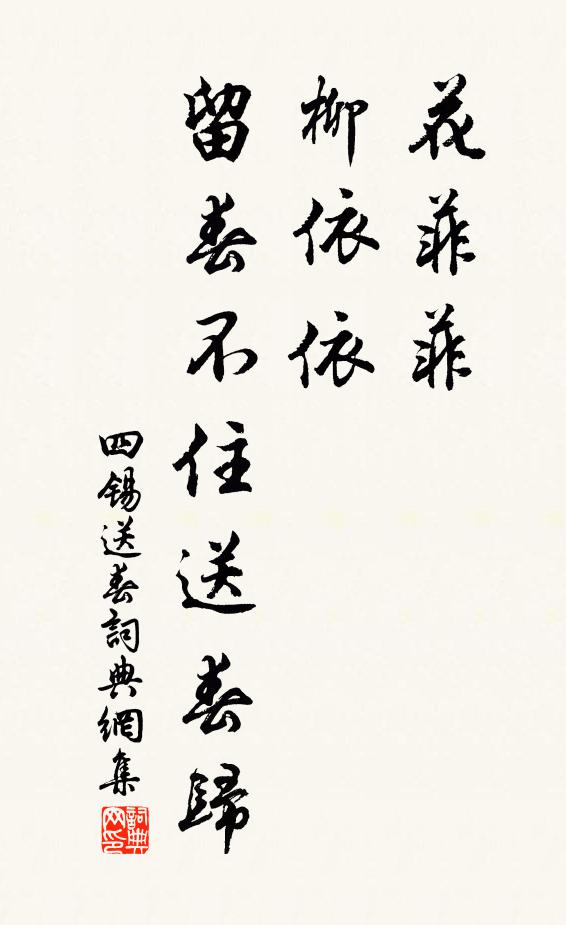 花菲菲
柳依依
留春不住送春歸
四錫送春詞典網集
詞典网印